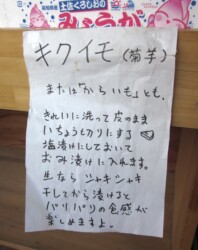 土佐くろしおの
みょうが
キクイモ(菊芋)
または「からいも」とも、
きれいに洗って皮のまま
いちょう切りにする
塩漬けにしておいて
おみ漬けに入れます。
生なら シャキシャキ
干してから漬けると
パリパリの食感が
楽しめますよ。